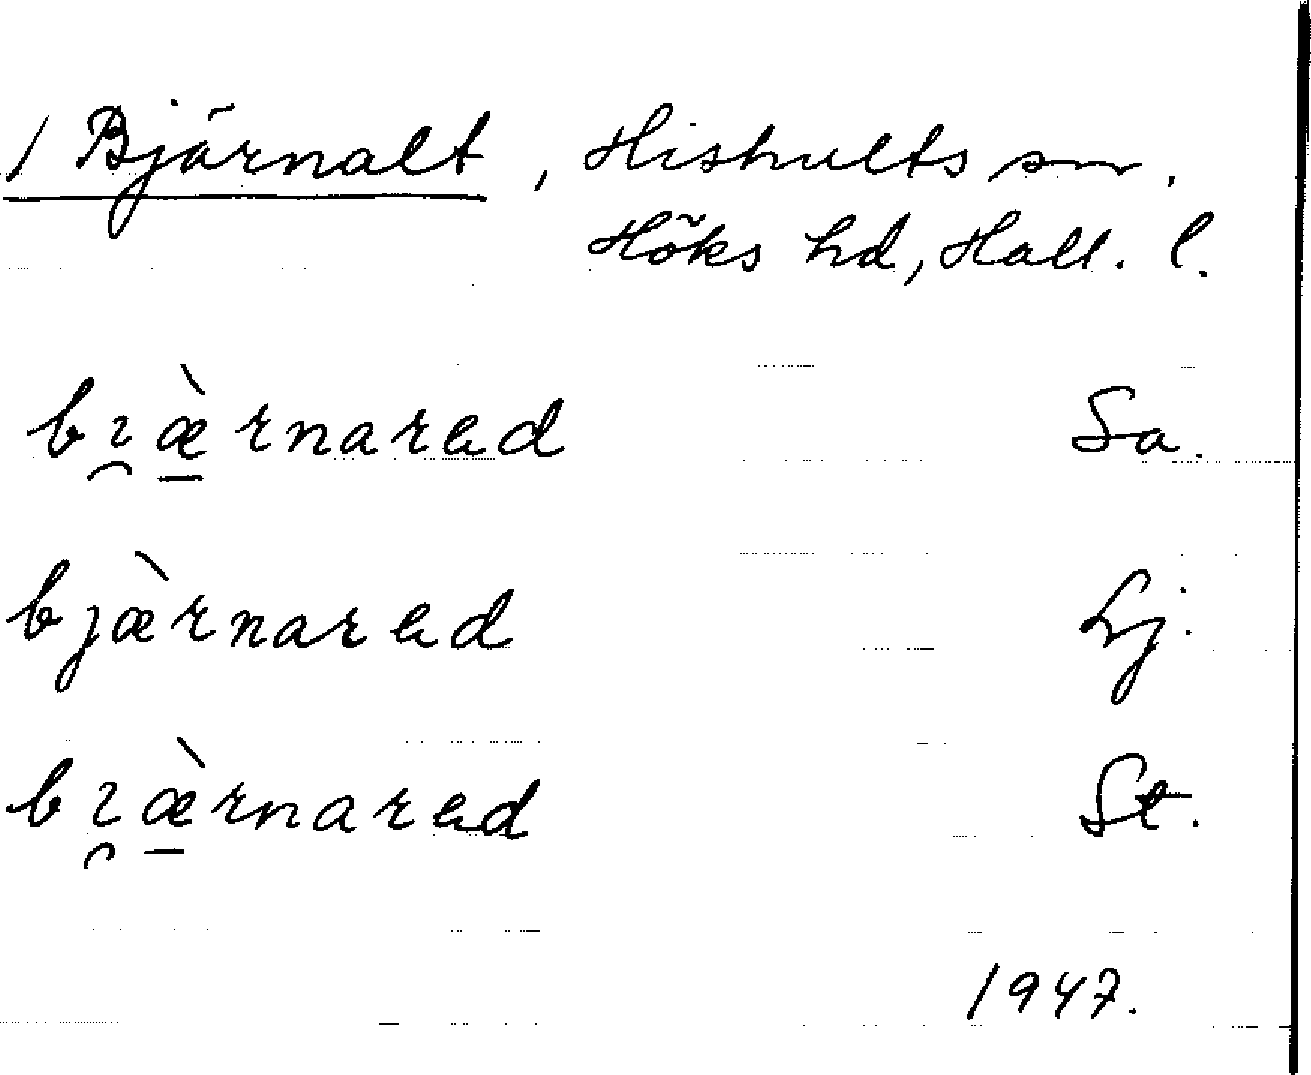 1 Bjärnalt, Hishults sn.
Höks hd, Hall. l.
bɿ̯æ̱̀rnarad Sa.
bjæ̀rnarad Lj.
bɿ̯æ̱̀rnarad St.
1947.